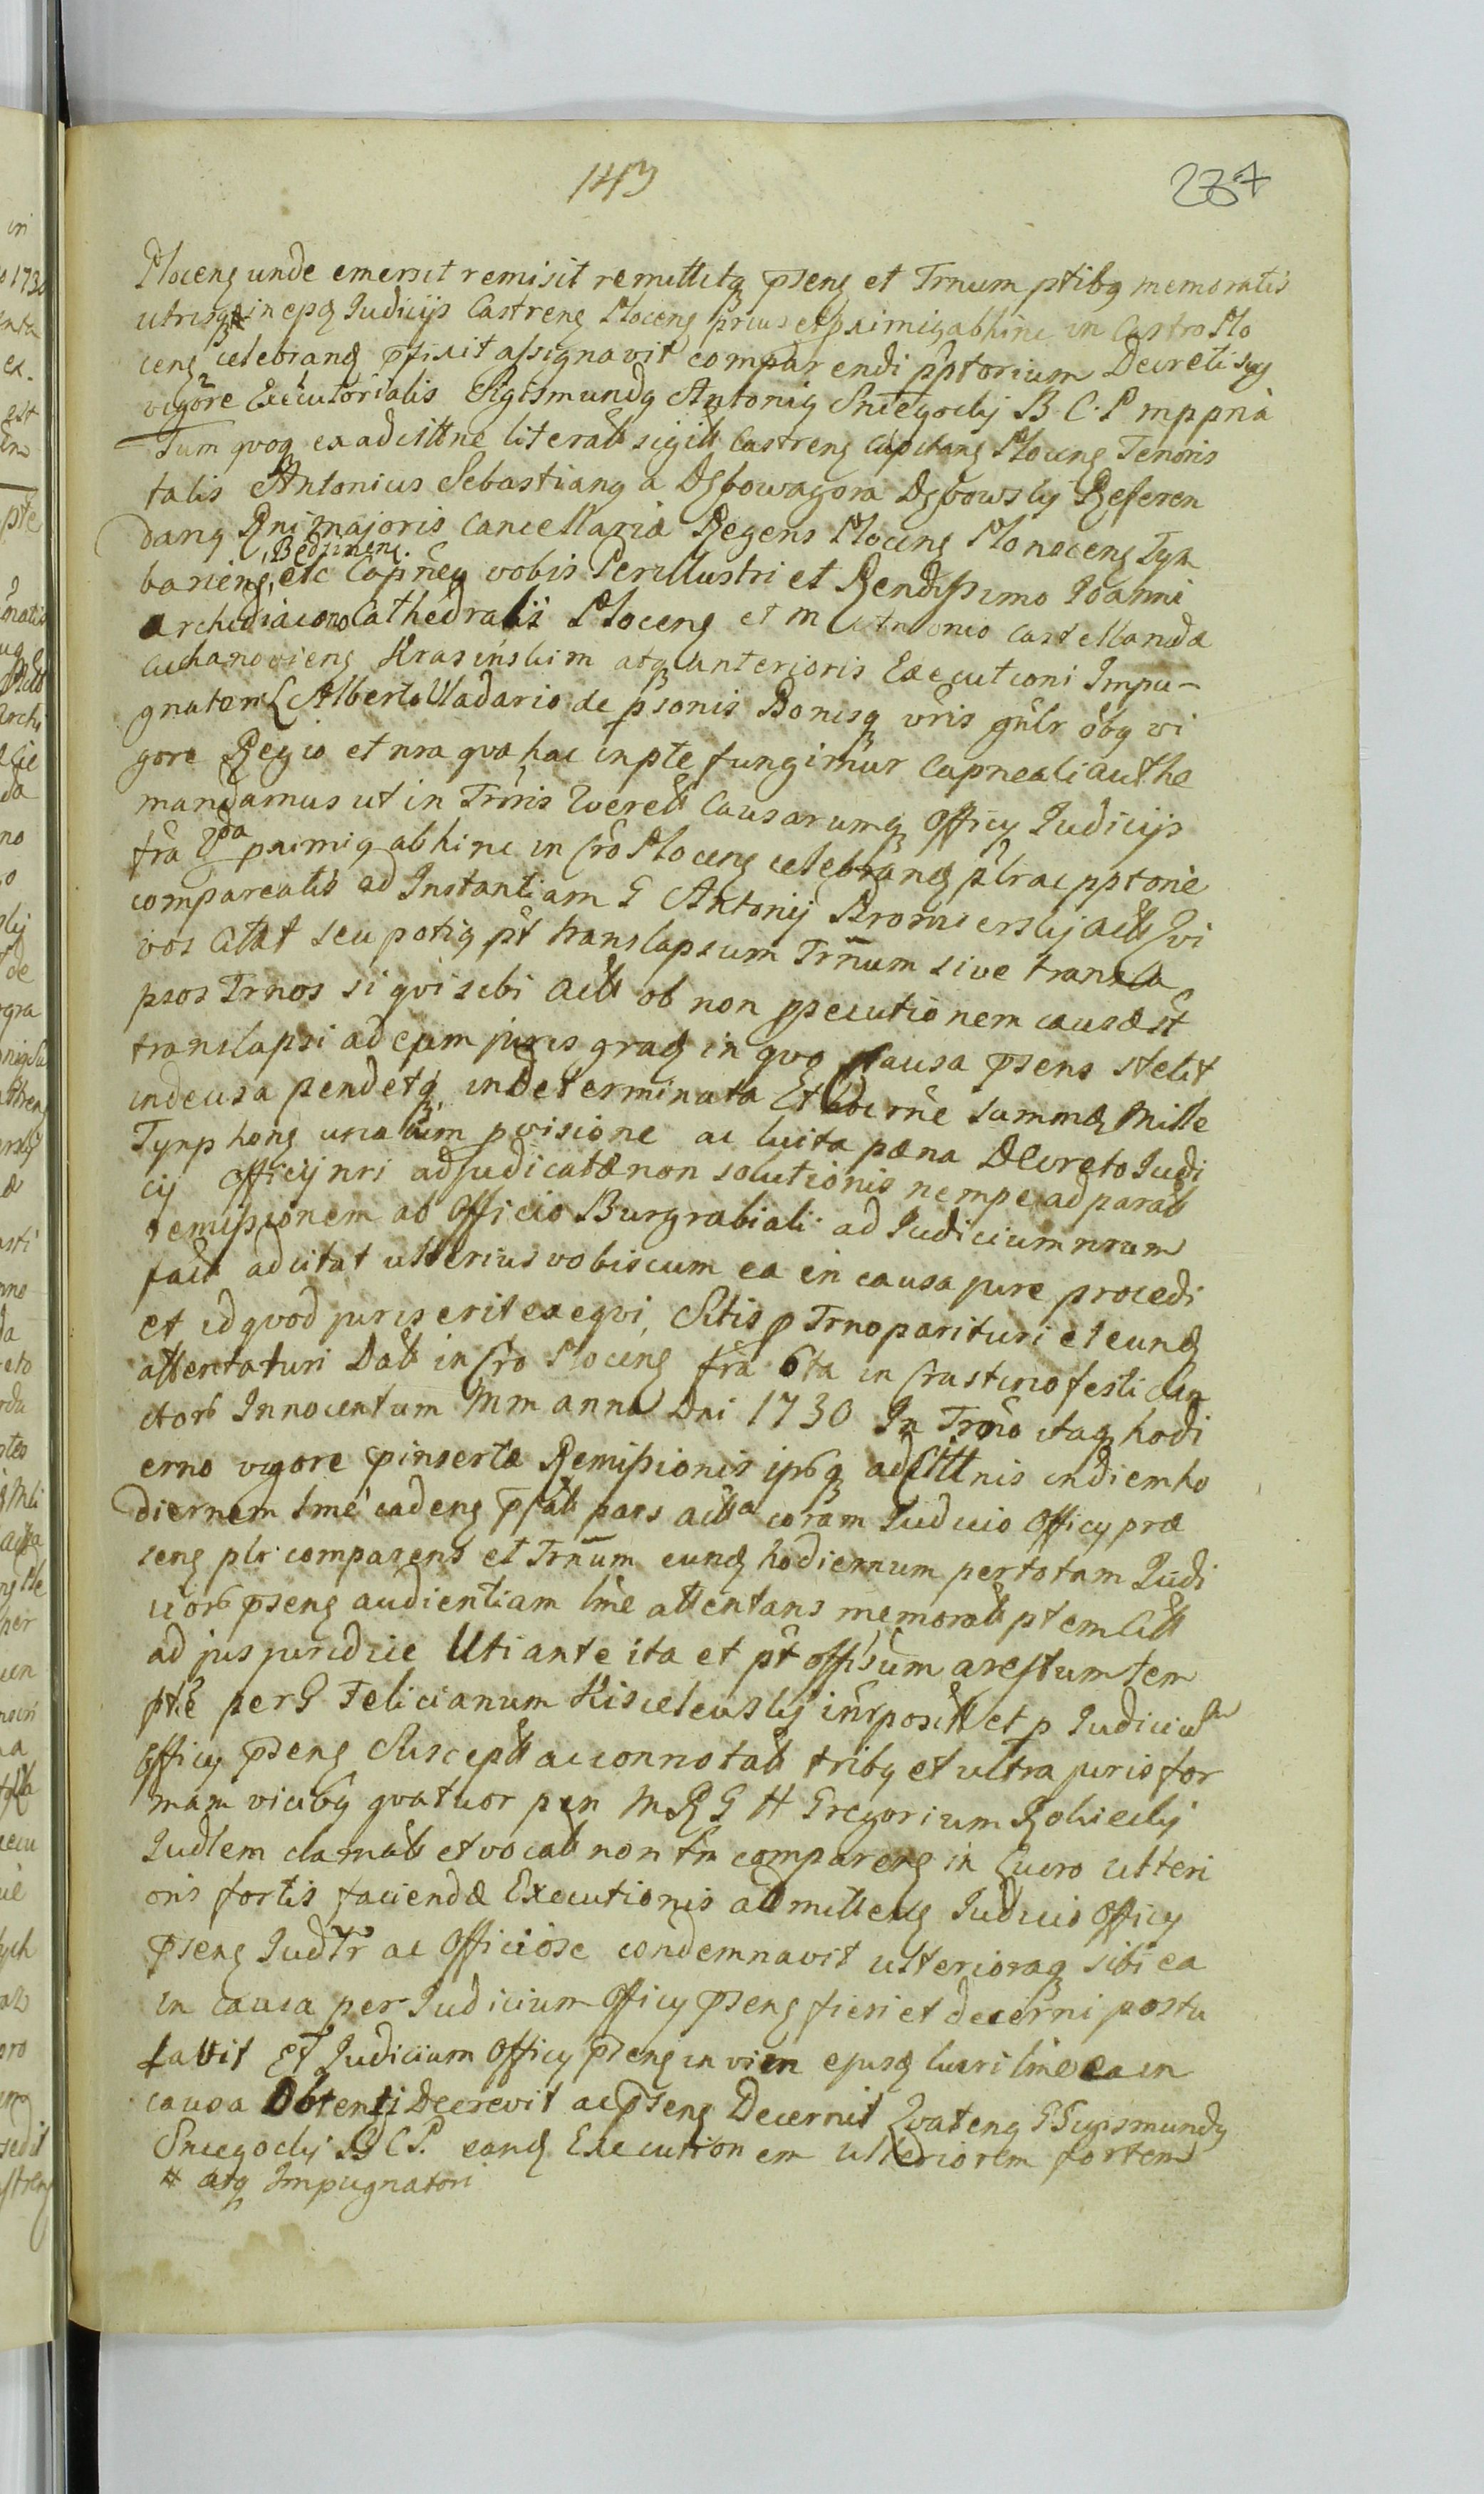 143
237
Ploceng unde emersit remisit remittitq pseng et Trnum ptibq memoratis
utrisq in epq Judicijs Castreng Ploceng prius et primig abhinc in Castro Plo
ceng celebrang pfixit assignavit comparendi pptorium Decreti sui
vigore Executorialis Sigismundq Antonig Sniegocky B. C. P mppria
Tum qvoq ex adcittne literali sigill Castreng Capitang Ploceng Tenoris
talis Antonius Sebastiang a Dębowagora Dębowsky Referen
dang Rni majoris Cancellaria Regens Ploceng Plonsceng Tyn
barieng, etc Capneg vobis Perillustri et Rendissimo Joanni
Archidiacono Cathedralis Ploceng et M Antonio Castellanida
Ciechanovieng Krasinskim atq anterioris Executioni Impu-
gnatori Alberto Wadario de psonis Bonisq vris gnlr obq vi
gore Regio et nra qva hac in pte fungimur Capneali autthe
mandamus ut in Trnis Querell Causarumq Officy Judicijs
fra 2da primig abhinc in Cro Ploceng celebrang plr ac pptorie
compareatis ad Instantiam G Antonij Bromierskij Actt Qvi
vos Citat seu potiq pt translapsum Trnum sive transla
psos Trnos si qvi sibi Actt ob non psecutionem causæ st
translapsi ad eum juris grad in qvo Causa psens stetit
indecisa pendetq indeterminata Et summæ Mille
Tynphong una cum pvisione ac luita pæna Decreto Judi
cij Officij nri adjudicatæ non solutionis nempe ad parat
remissionem ab Officio Burgrabiali ad Judicium nrum
fact adcitat ulterius vobiscum ea in causa jure procedi
et id qvod juris erit exeqvi, Sitis p Trno parituri et eund
attentaturi Datt in Cro Ploceng fra 6ta in Crastino festi San
ctorb Innocentum Mm anno Dni 1730 In Trno itaq hodi
erno vigore pinsertæ Remissionis ipsq adcittnis in diem ho
diernem lme cadeng psatt pars actta coram Judicio Officy præ
seng plr comparens et Trnum eund hodiernum per totam Judi
ciorb pseng audientiam lme attentans memoratt ptem Citt
ad jus juridice Uti ante ita et pt offisum arestum tem
ptie per G Felicianum Kisielewsky intrposit et p Judicium
Officy pseng Susceptt ac connotatt tribq et ultra juris for
mam vicibq qvatuor per M R G H Gregorium Rokicky
Judlem clamatt et vocatt non tn compareng in Lucro ulteri
oris fortis faciendæ Executionis admitteng Judicio Officy
pseng Judtr ac Officiose condemnavit ulterioraq sibi ea
in causa per Judicium Officy pseng fieri et decerni postu
lavit Et Judicium Officy pseng in vim ejusd lucri lme ea in
causa Obtenti Decrevit ac pseng Decernit Qvateng G Sigismundq
Sniegocky B C P. eand Executionem ulteriorem fortem
# atq Impugnatori